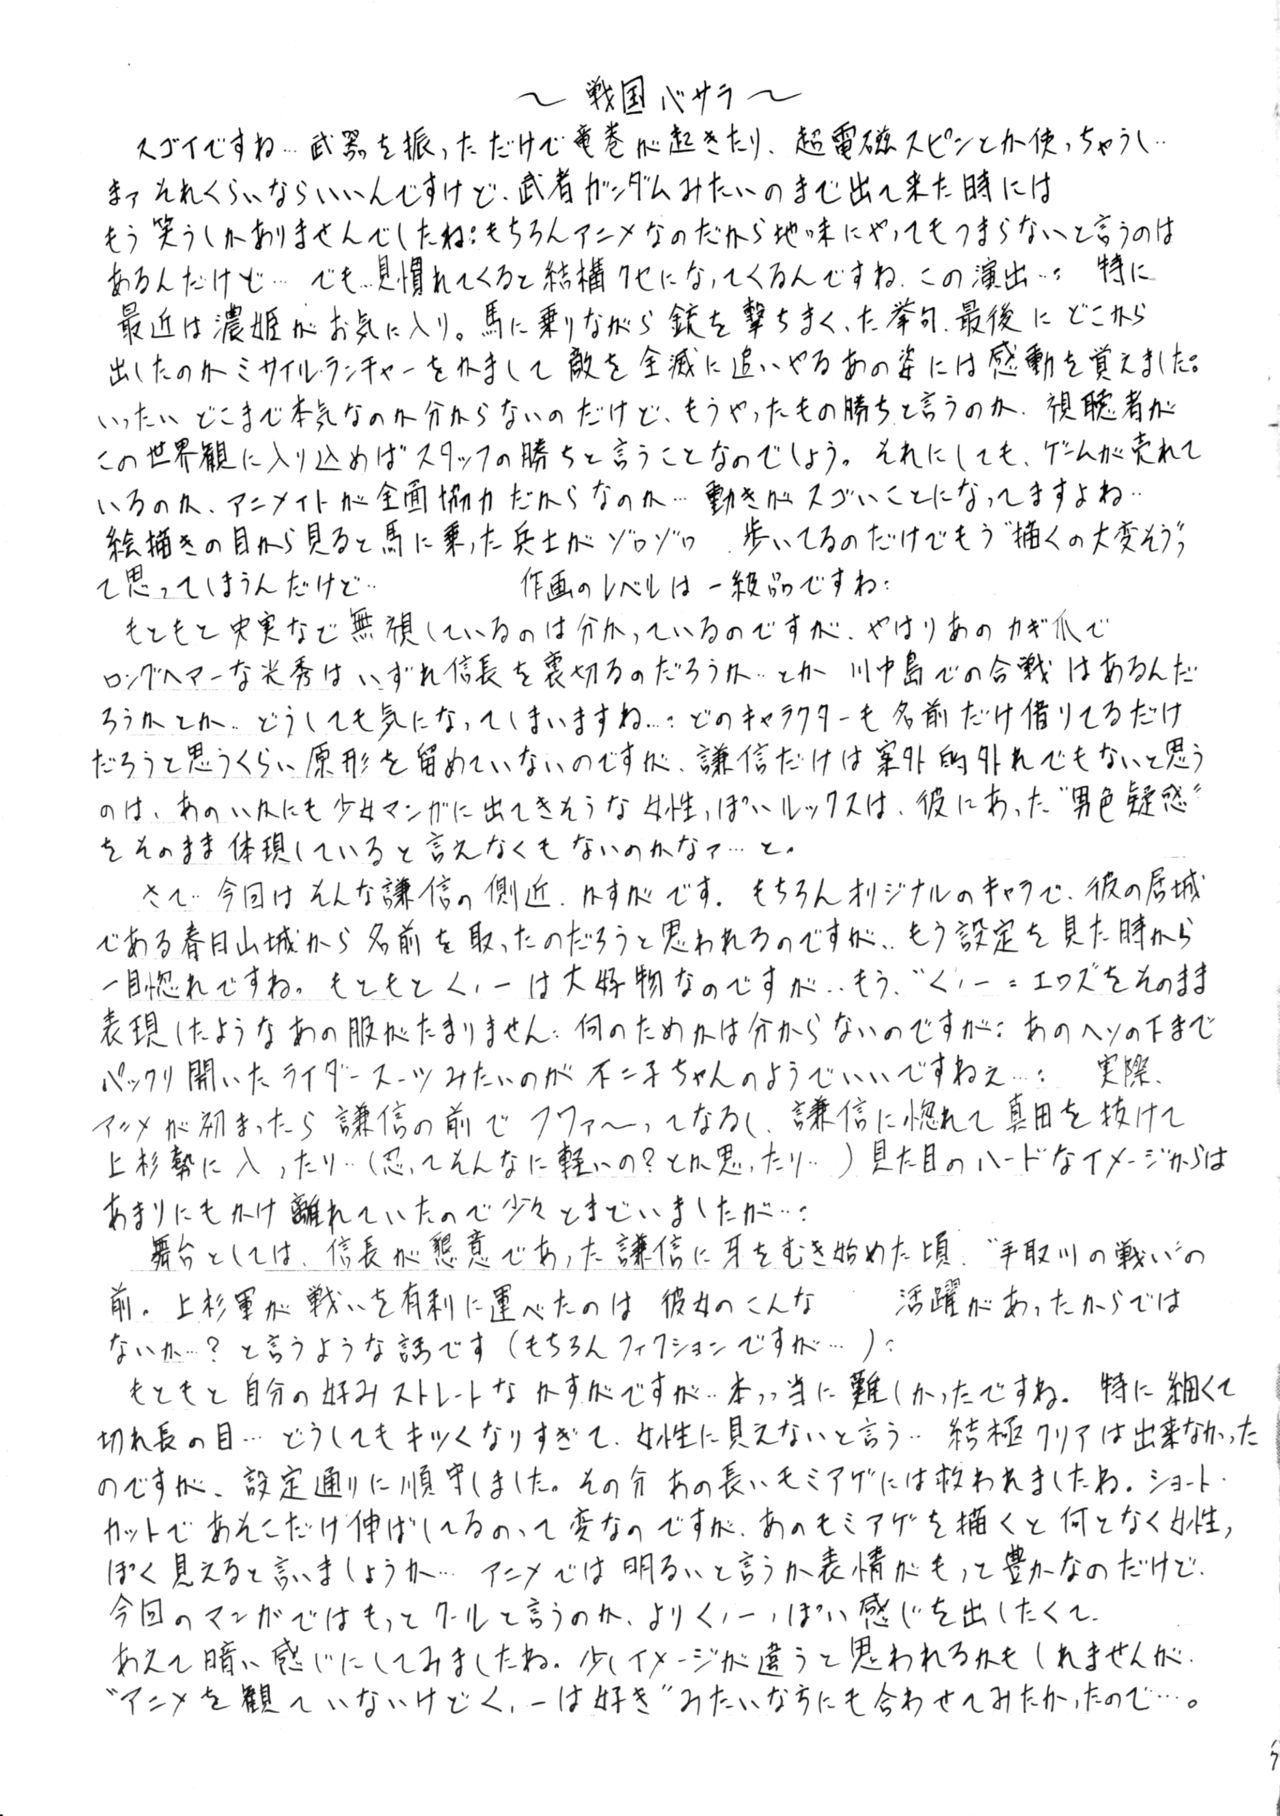 〜戦国バサラ〜
スゴイですね…武器を振っただけで竜巻が起きたり、超電磁スピンとか使っちゃうし…
まァそれくらいならいいんですけど、武者ガンダムみたいのまで出て来た時には
もう笑うしかありませんでしたね:もちろんアニメなのだから地味にやってもつまらないと言うのは
あるんだけど… でも…見慣れてくると結構クセになってくるんですね、この演出…: 特に
最近は濃姫がお気に入り。馬に乗りながら銃を撃ちまくった挙句、最後にどこから
出したのかミサイルランチャーをかまして敵を全滅に追いやるあの姿には感動を覚えました。
いったいどこまで本気なのか分からないのだけど、もうやったもの勝ちと言うのか、視聴者が
この世界観に入り込めばスタッフの勝ちと言うことなのでしょう。それにしても、ゲームが売れて
いるのか、アニメイトが全面協力だからなのか…動きがスゴいことになってますよね…
絵描きの目から見ると馬に乗った兵士がゾロゾロ 歩いてるのだけでもう“描くの大変そう”
て思ってしまうんだけど… 作画のレベルは一級品ですね:
もともと史実など無視しているのは分かっているのですが、やはりあのカギ爪で
ロングヘアーな光秀はいずれ信長を裏切るのだろうか…とか 川中島での合戦はあるんだ
ろうかとか…どうしても気になってしまいますね…:どのキャラクターも名前だけ借りてるだけ
だろうと思うくらい原形を留めていないのですが、謙信だけは案外的外れでもないと思う
のは、あのいかにも少女マンガに出てきそうな女性っぽいルックスは、彼にあった“男色疑惑”
をそのまま体現していると言えなくもないのかなァ…と。
さて…今回はそんな謙信の側近、かすがです。もちろんオリジナルのキャラで、彼の居城
である春日山城から名前を取ったのだろうと思われるのですが…もう設定を見た時から
一目惚れですね。もともとくノ一は大好物なのですが…もう、“くノ一=エロズをそのまま
表現したようなあの服がたまりません:何のためかは分からないのですが:あのヘソの下まで
パックリ開いたライダースーツみたいのが不二子ちゃんのようでいいですねェ…: 実際、
アニメが初まったら謙信の前でフワァ〜ってなるし、謙信に惚れて真田を抜けて
上杉勢に入ったり…(忍ってそんなに軽いの?とか思ったり…)見た目のハードなイメージからは
あまりにもかけ離れていたので少々とまどいましたが…:
舞台としては、信長が懇意であった謙信に牙をむき始めた頃、“手取川の戦い”の
前。上杉軍が戦いを有利に運べたのは彼女のこんな 活躍があったからでは
ないか…?と言うような話です(もちろんフィクションですが…):
もともと自分の好みストレートなかすがですが…本っ当に難しかったですね。特に細くて
切れ長の目…どうしてもキツくなりすぎて、女性に見えないと言う…結極クリアは出来なかった
のですが、設定通りに順守しました。その分あの長いモミアゲには救われましたね。ショート
カットであそこだけ伸ばしてるのって変なのですが、あのモミアゲを描くと何となく女性っ
ぽく見えると言いましょうか… アニメでは明るいと言うか表情がもっと豊かなのだけど、
今回のマンガではもっとクールと言うのか、よりくノ一っぽい感じを出したくて、
あえて暗い感じにしてみましたね。少しイメージが違うと思われるかもしれませんが、
“アニメを観ていないけどくノ一は好き”みたいな方にも合わせてみたかったので…。